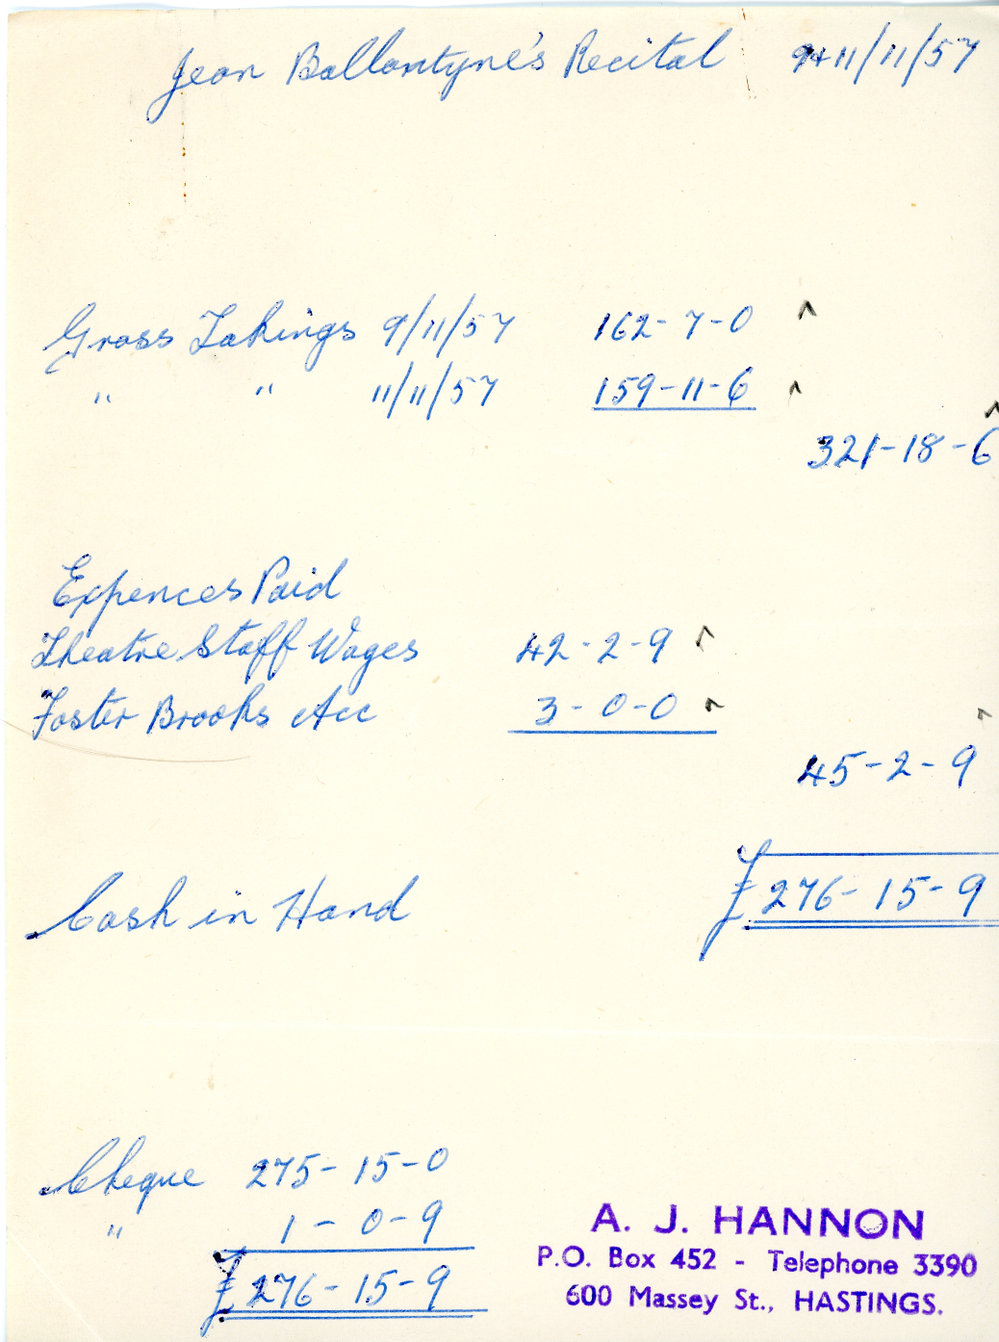 Jean Ballantyne's Recital 9+11/11/57
Gross Takings 9/11/57 162-7-0
" " 11/11/57 159-11-6
321-18-6
Expences Paid
Theatre Staff Wages 42-2-9
Foster Brooks Acc 3-0-0
45-2-9
Cash in Hand £276-15-9
Cheque 275-15-0
" 1-0-9
£276-15-9
A. J. HANNON
P.O. Box 452 - Telephone 3390
600 Massey St., HASTINGS.